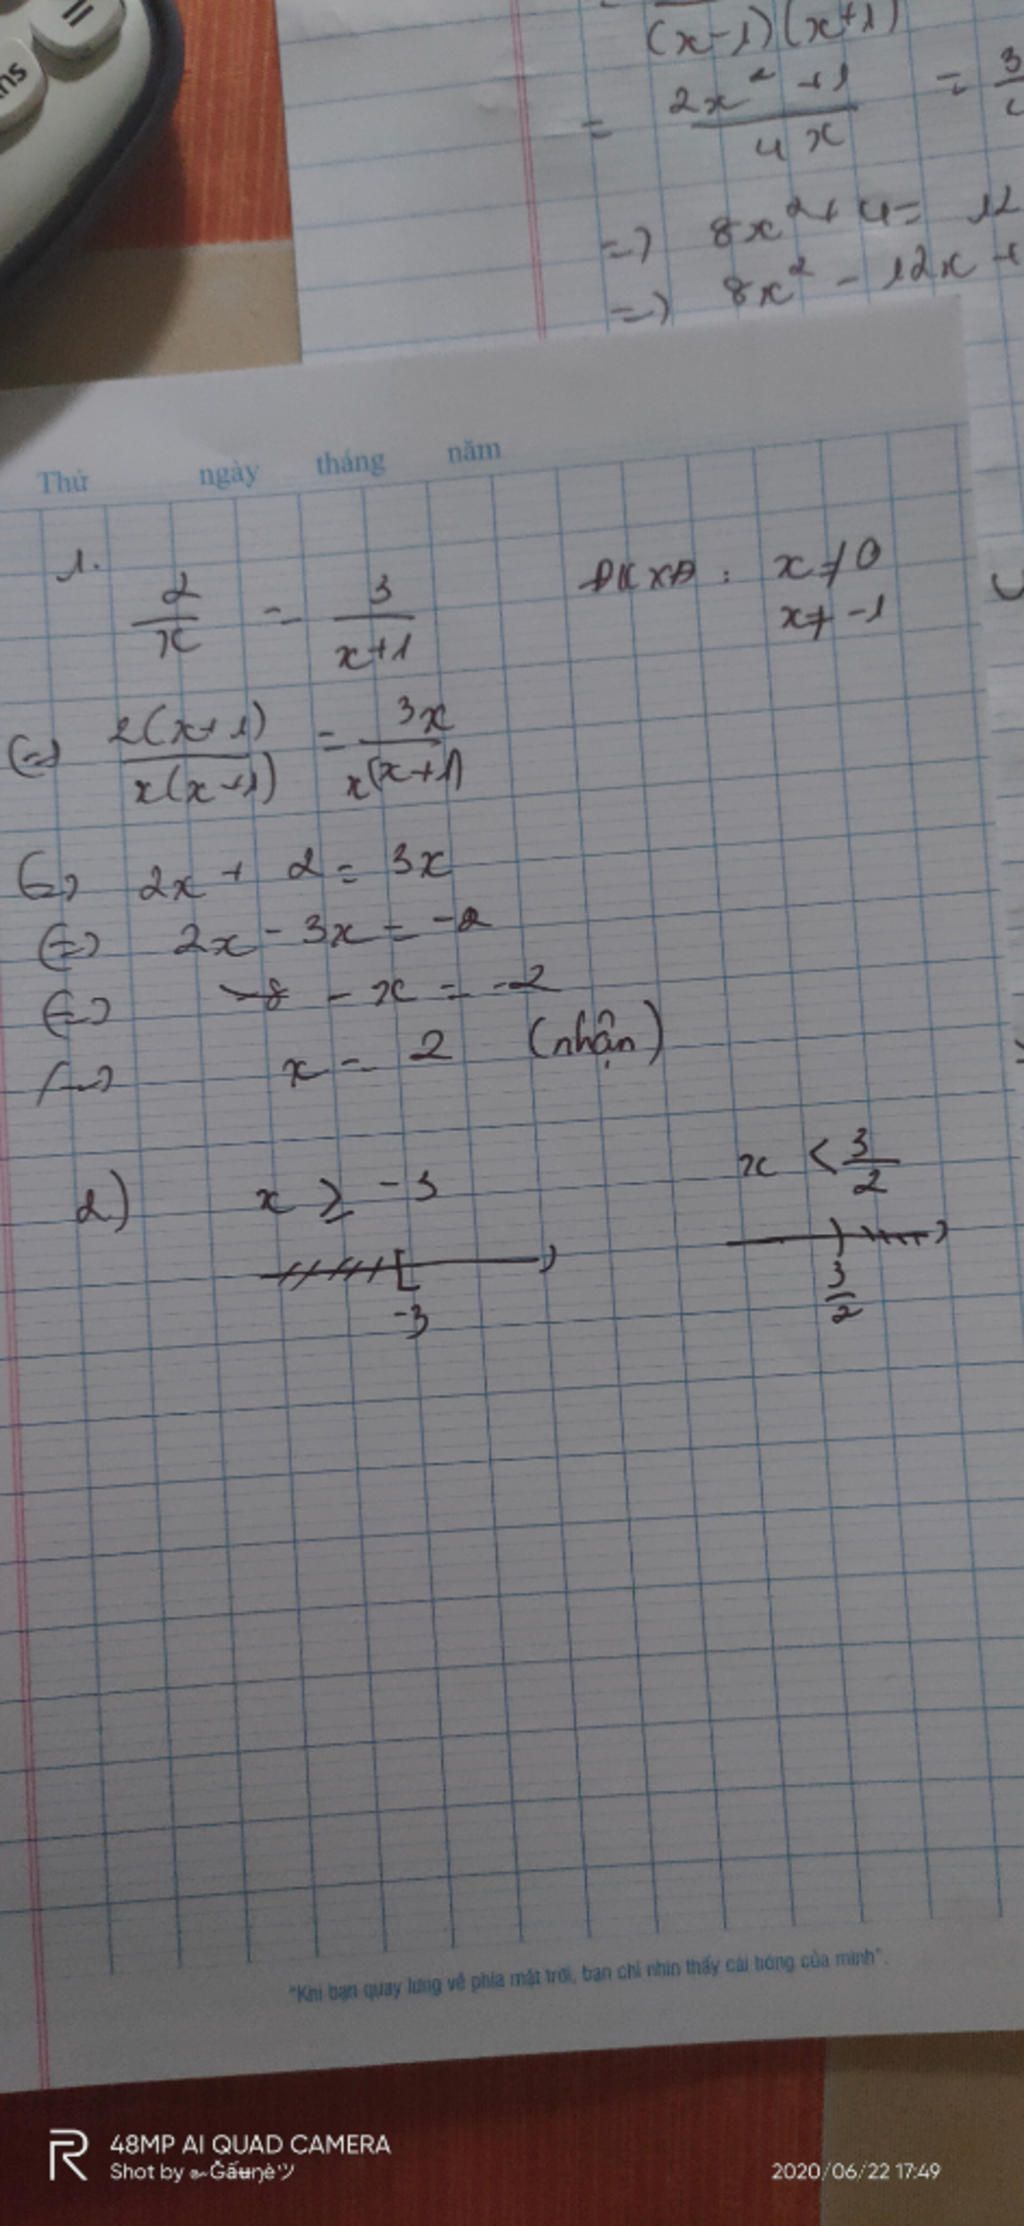 ns
=
(x-1)(x+1)
= 2x² +1 / 4x = 3
=> 8x² + 4 = 12
=> 8x² - 12x +
Thứ ngày tháng năm
1.
2/x = 3/(x+1) ĐKXĐ: x ≠ 0
x ≠ -1
(=) 2(x+1)/x(x+1) = 3x/x(x+1)
(=) 2x + 2 = 3x
(=) 2x - 3x = -2
(=) - x = -2
(=) x = 2 (nhận)
2) x ≥ -3 x < 3/2
-3 3/2
"Khi bạn quay lưng về phía mặt trời, bạn chỉ nhìn thấy cái bóng của mình".
R 48MP AI QUAD CAMERA
Shot by
2020/06/22 17:49